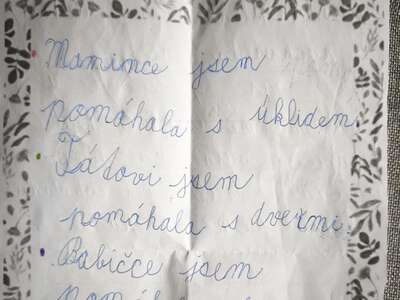 Mamince jsem
pomáhala s úklidem.
Tátovi jsem
pomáhala s dveřmi.
Babičce jsem